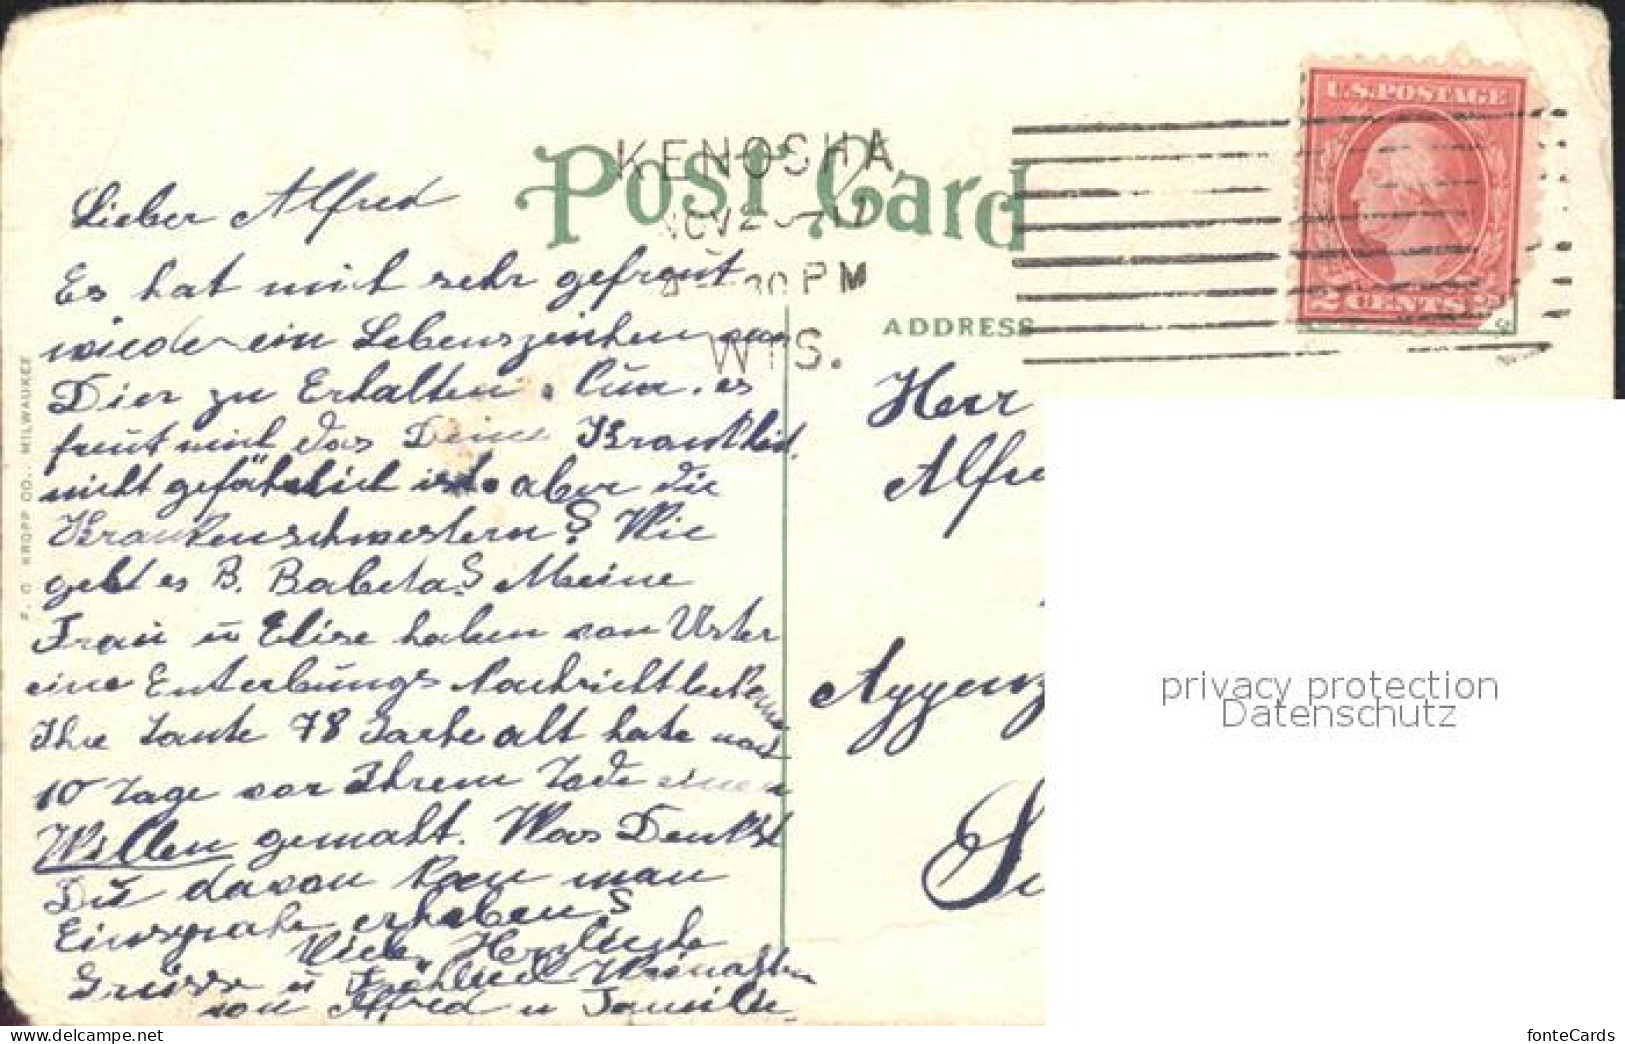 Post Card
KENOSHA
NOV 2
30 PM
WIS.
U.S. POSTAGE
2 CENTS 2
ADDRESS
E. C. KROPP CO., MILWAUKEE
Lieber Alfred
Es hat mich sehr gefreut
wieder ein Lebenszeichen von
Dier zu Erhalten. es
freut mich das Deine Krankheit
nicht gefährlich ist. aber die
Krankenschwestern? Wie
geht es B. Babeta? Meine
Frau u Elise haben von Uster
eine Enterbungs Nachricht bekommen
Ihre Tante 78 Jarhe alt hate noch
10 Tage vor Ihrem Tode einen
Willen gemaht. Was Denkst
Du davon kan man
Einsprahe erheben?
Viele Herzliche
Grüsse u Fröhliche Weinahten
von Alfred u Familie
Herr
Alfre
Appenz
privacy protection
Datenschutz
fonteCards